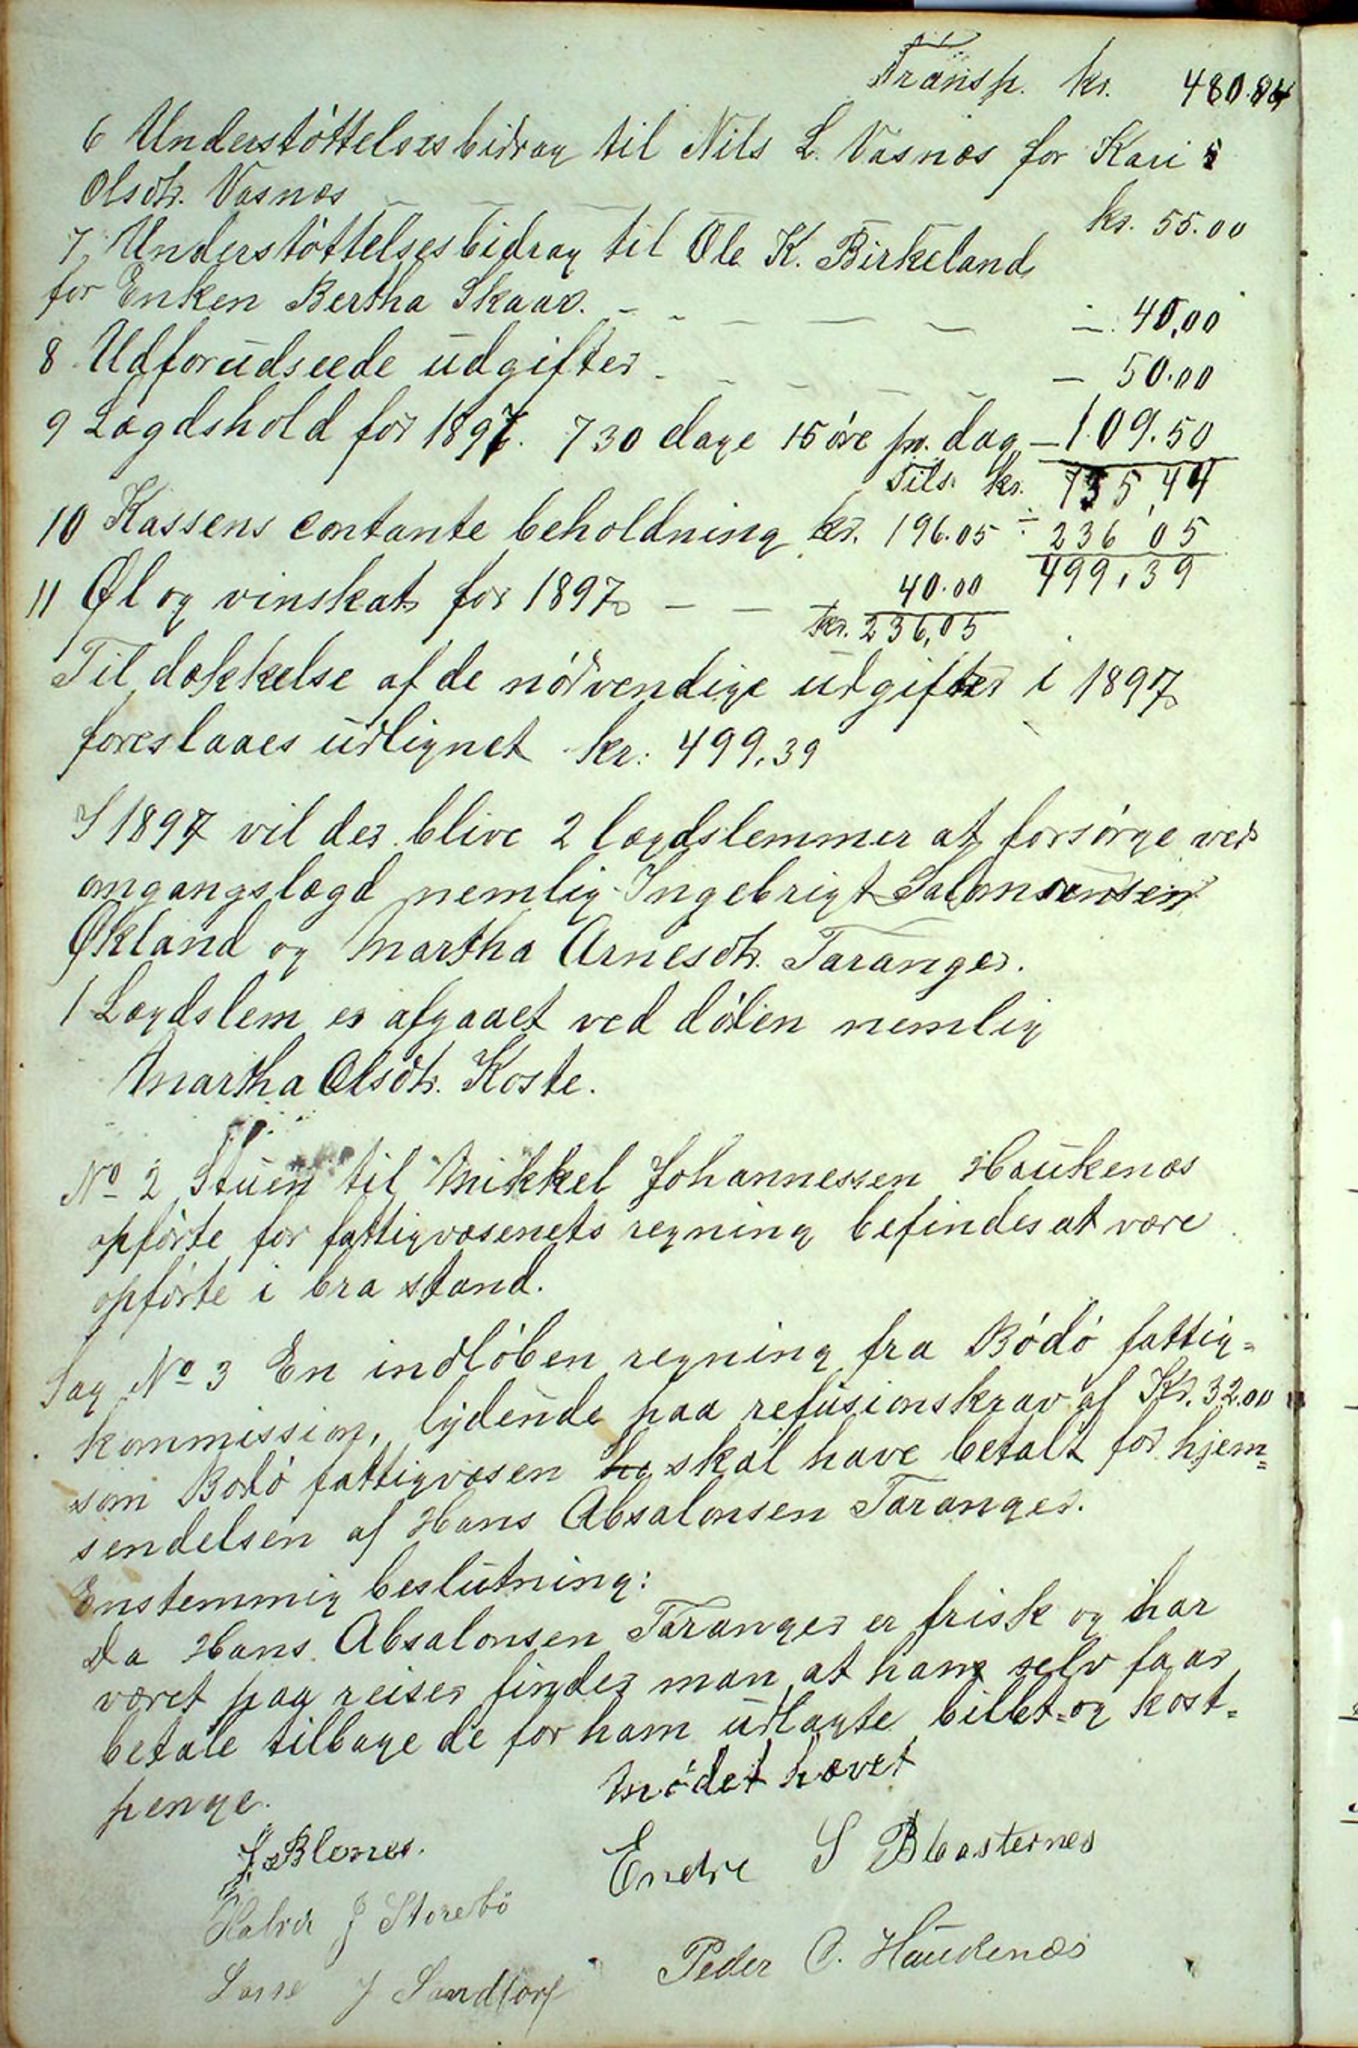 Transp. kr. 480.84
6 Understøttelsesbidrag til Nils L. Vasnæs for Kari
Olsdtr. Vasnæs kr. 55.00
7 Understøttelsesbidrag til Ole K. Birkeland
for Enken Bertha Skaar. - - - - - - 40,00
8 Udforudseede udgifter - - - - - - 50.00
9 Lægdshold for 1897. 730 dage 15 øre pr. dag - 109.50
Tils. kr. 735,44
10 Kassens contante beholdning kr. 196.05 ÷ 236 05
11 Øl og vinskat for 1897 - - - 40.00 499,39
kr. 236,05
Til dækkelse af de nødvendige udgifter i 1897
foreslaaes udlignet kr: 499,39
I 1897 vil der blive 2 lægdslemmer at forsørge ved
omgangslægd nemlig Ingebrigt Salomonsen
Økland og Martha Arnesdtr. Taranger.
1 Lægdslem er afgaaet ved døden nemlig
Martha Olsdtr. Koste.
No 2 Stuen til Mikkel Johannessen Haukenæs
opførte for fattigvæsenets regning befindes at være
opførte i bra stand.
Sag No 3 En indløben regning fra Bodø fattig=
kommission, lydende paa refusionskrav af Kr. 32.00
som Bodø fattigvæsen skal have betalt for hjem=
sendelsen af Hans Absalonsen Taranger.
Enstemmig beslutning:
Da Hans Absalonsen Taranger er frisk og har
været paa reiser finder man at han selv faar
betale tilbage de for ham udlagte billet= og kost=
penge. Mødet hævet
Endre S Blaasternes
Halvor J Storebø
Peder O. Haukenæs
Lasse J Sandtorf